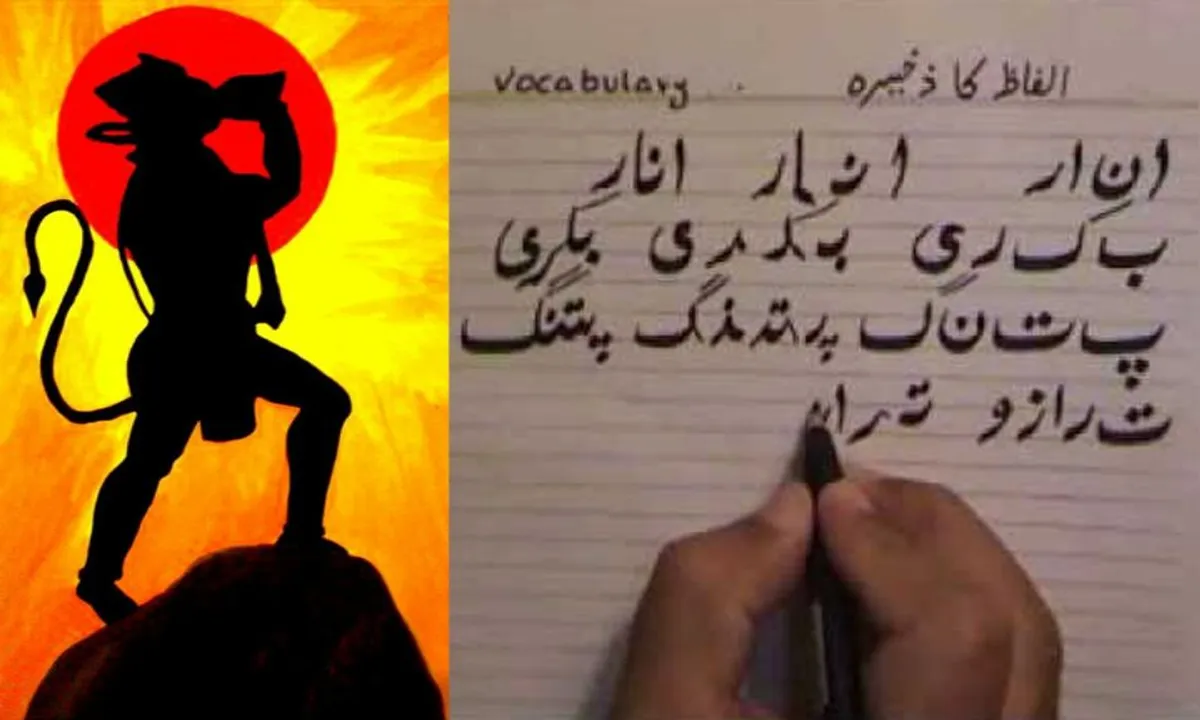 Vocabulary ... الفاظ کا ذخیرہ
ا ن ا ر انار انار
ب ک ر ی بکری بکری
پ ت ن گ پتنگ پتنگ
ت ر ا ز و ترا